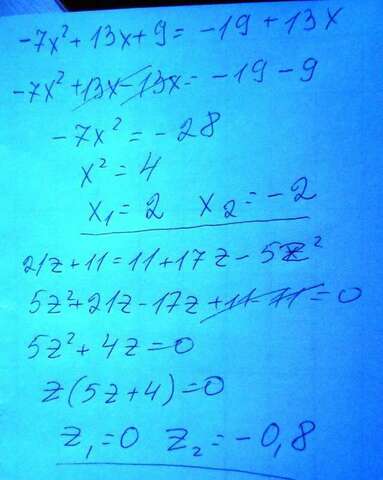 -7x² + 13x + 9 = -19 + 13x
-7x² + 13x - 13x = -19 - 9
-7x² = -28
x² = 4
x₁ = 2 x₂ = -2
21z + 11 = 11 + 17z - 5z²
5z² + 21z - 17z + 11 - 11 = 0
5z² + 4z = 0
z(5z + 4) = 0
z₁ = 0 z₂ = -0,8